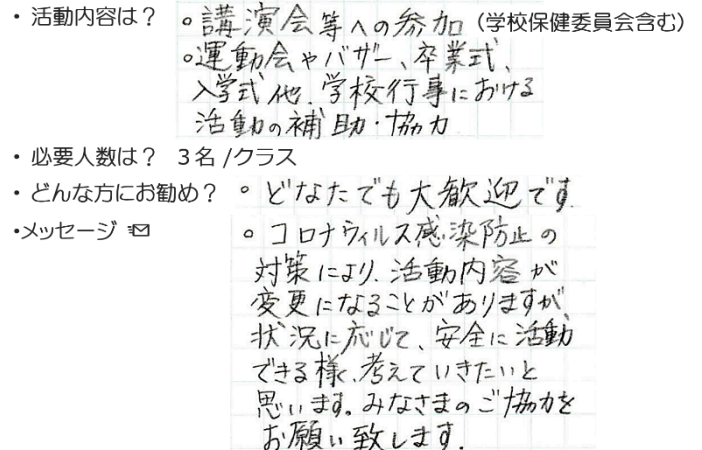 ・活動内容は？ 。講演会等への参加（学校保健委員会含む）
。運動会やバザー、卒業式、
入学式他、学校行事における
活動の補助・協力
・必要人数は？ ３名/クラス
・どんな方にお勧め？ 。どなたでも大歓迎です
・メッセージ 。コロナウィルス感染防止の
対策により、活動内容が
変更になることがありますが、
状況に応じて、安全に活動
できる様、考えていきたいと
思います。みなさまのご協力を
お願い致します。